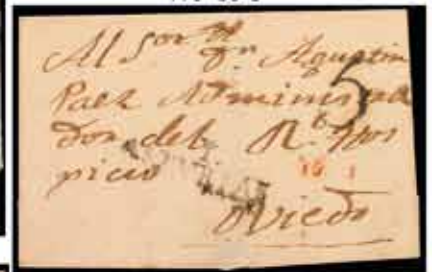 Al Sor Dn Agustin
Paez Adminis
dor del Rl Hos
picio
Oviedo